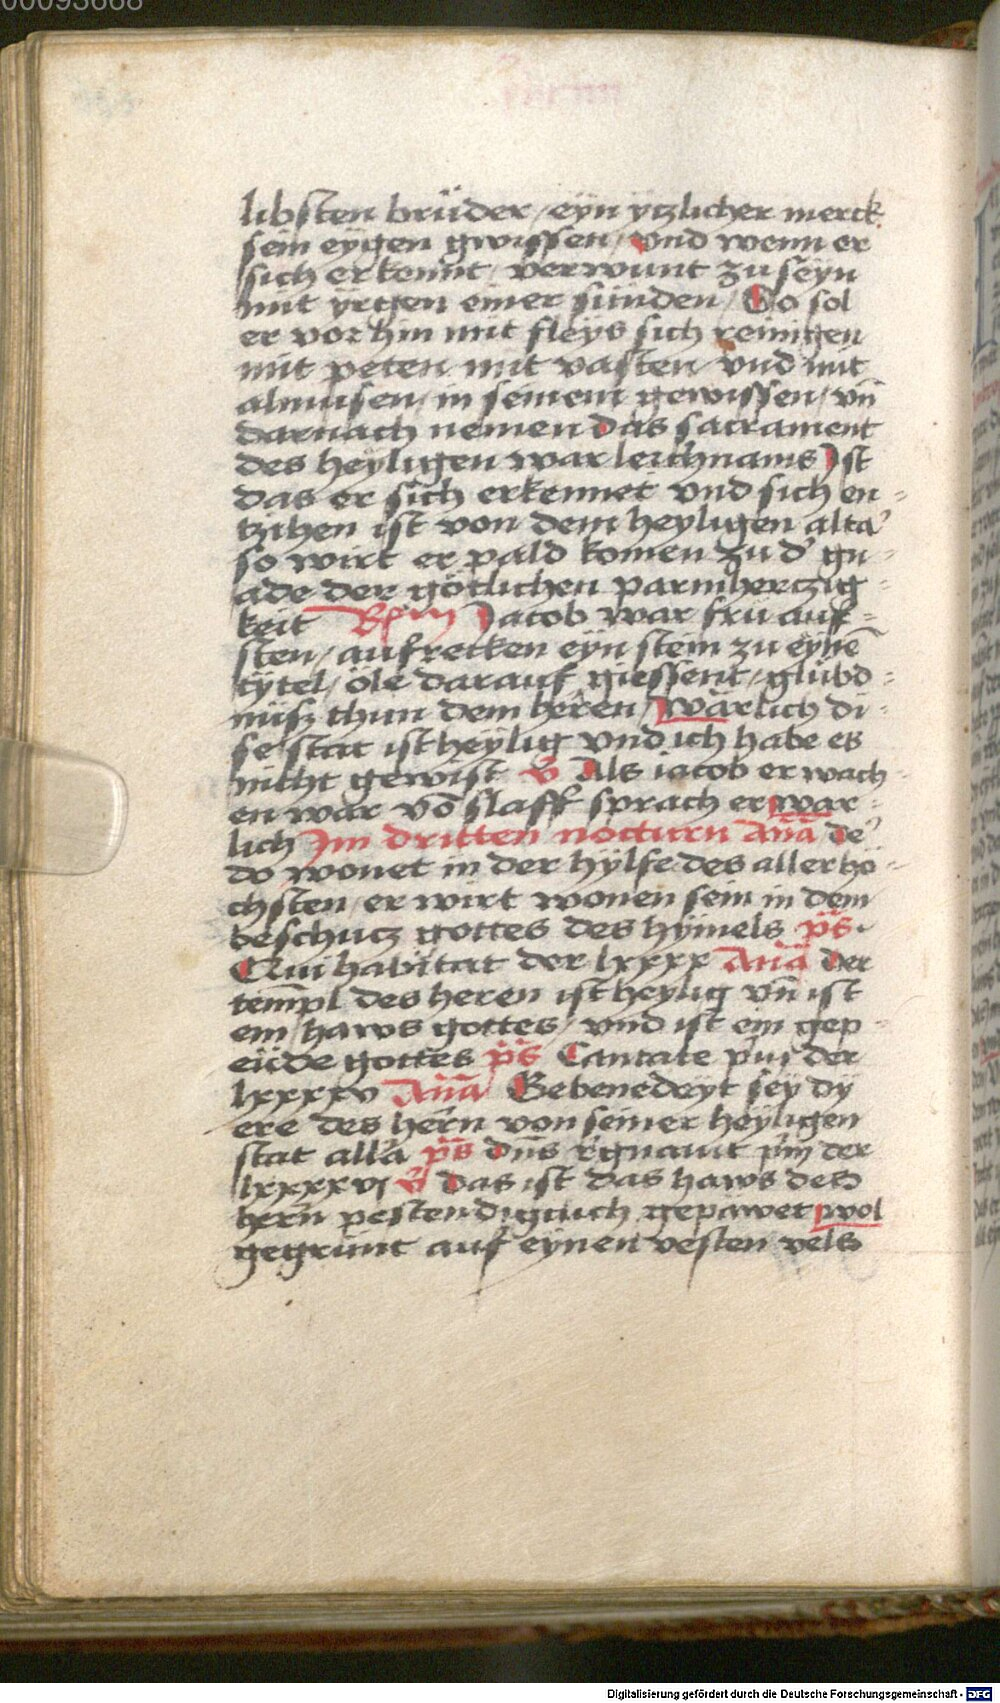 00093668
libsten brüder / eyn ytzlicher merck
sein eygen gwissen / vnd wenn er
sich erkennt / verwunt zu seyn
mit yrgen einer sünden / So sol
er vorhin mit fleys sich reinigen
mit peten / mit vasten / vnd mit
almusen / in seinem gewissen / vn̄
darnach nemen das sacrament
des heyligen war leichnams Ist
das er sich erkennet vnd sich en-
tzihen ist von dem heyligen alta'
so wirt er pald komen zu d' gn-
ade der götlichen parmhertzig-
keit Rm Jacob war fru auf-
sten / aufrecken eyn stein zu eynē
tytel / öle darauf giessent / glubd-
nusz thun dem heren / Warlich di-
se stat ist heylig vnd ich habe es
nicht gewist V Als iacob erwach-
en war vō slaff sprach er war-
lich Im dritten nocturn Ana De'
do wonet in der hylfe des allerhö-
chsten / er wirt wonen sein in dem
beschutz gottes des hymels ps
Qui habitat der lxxxx Ana Der
templ des heren ist heylig vn̄ ist
ein haws gottes / vnd ist ein gep-
eüde gottes ps Cantate pm der
lxxxxv Ana Gebenedeyt sey dy
ere des hern von seiner heyligen
stat alla ps Dns regnauit pm der
lxxxxvi V Das ist das haws des
hern pestendigclich gepawet wol
gegrünt auf eynen vesten vels
Digitalisierung gefördert durch die Deutsche Forschungsgemeinschaft - DFG